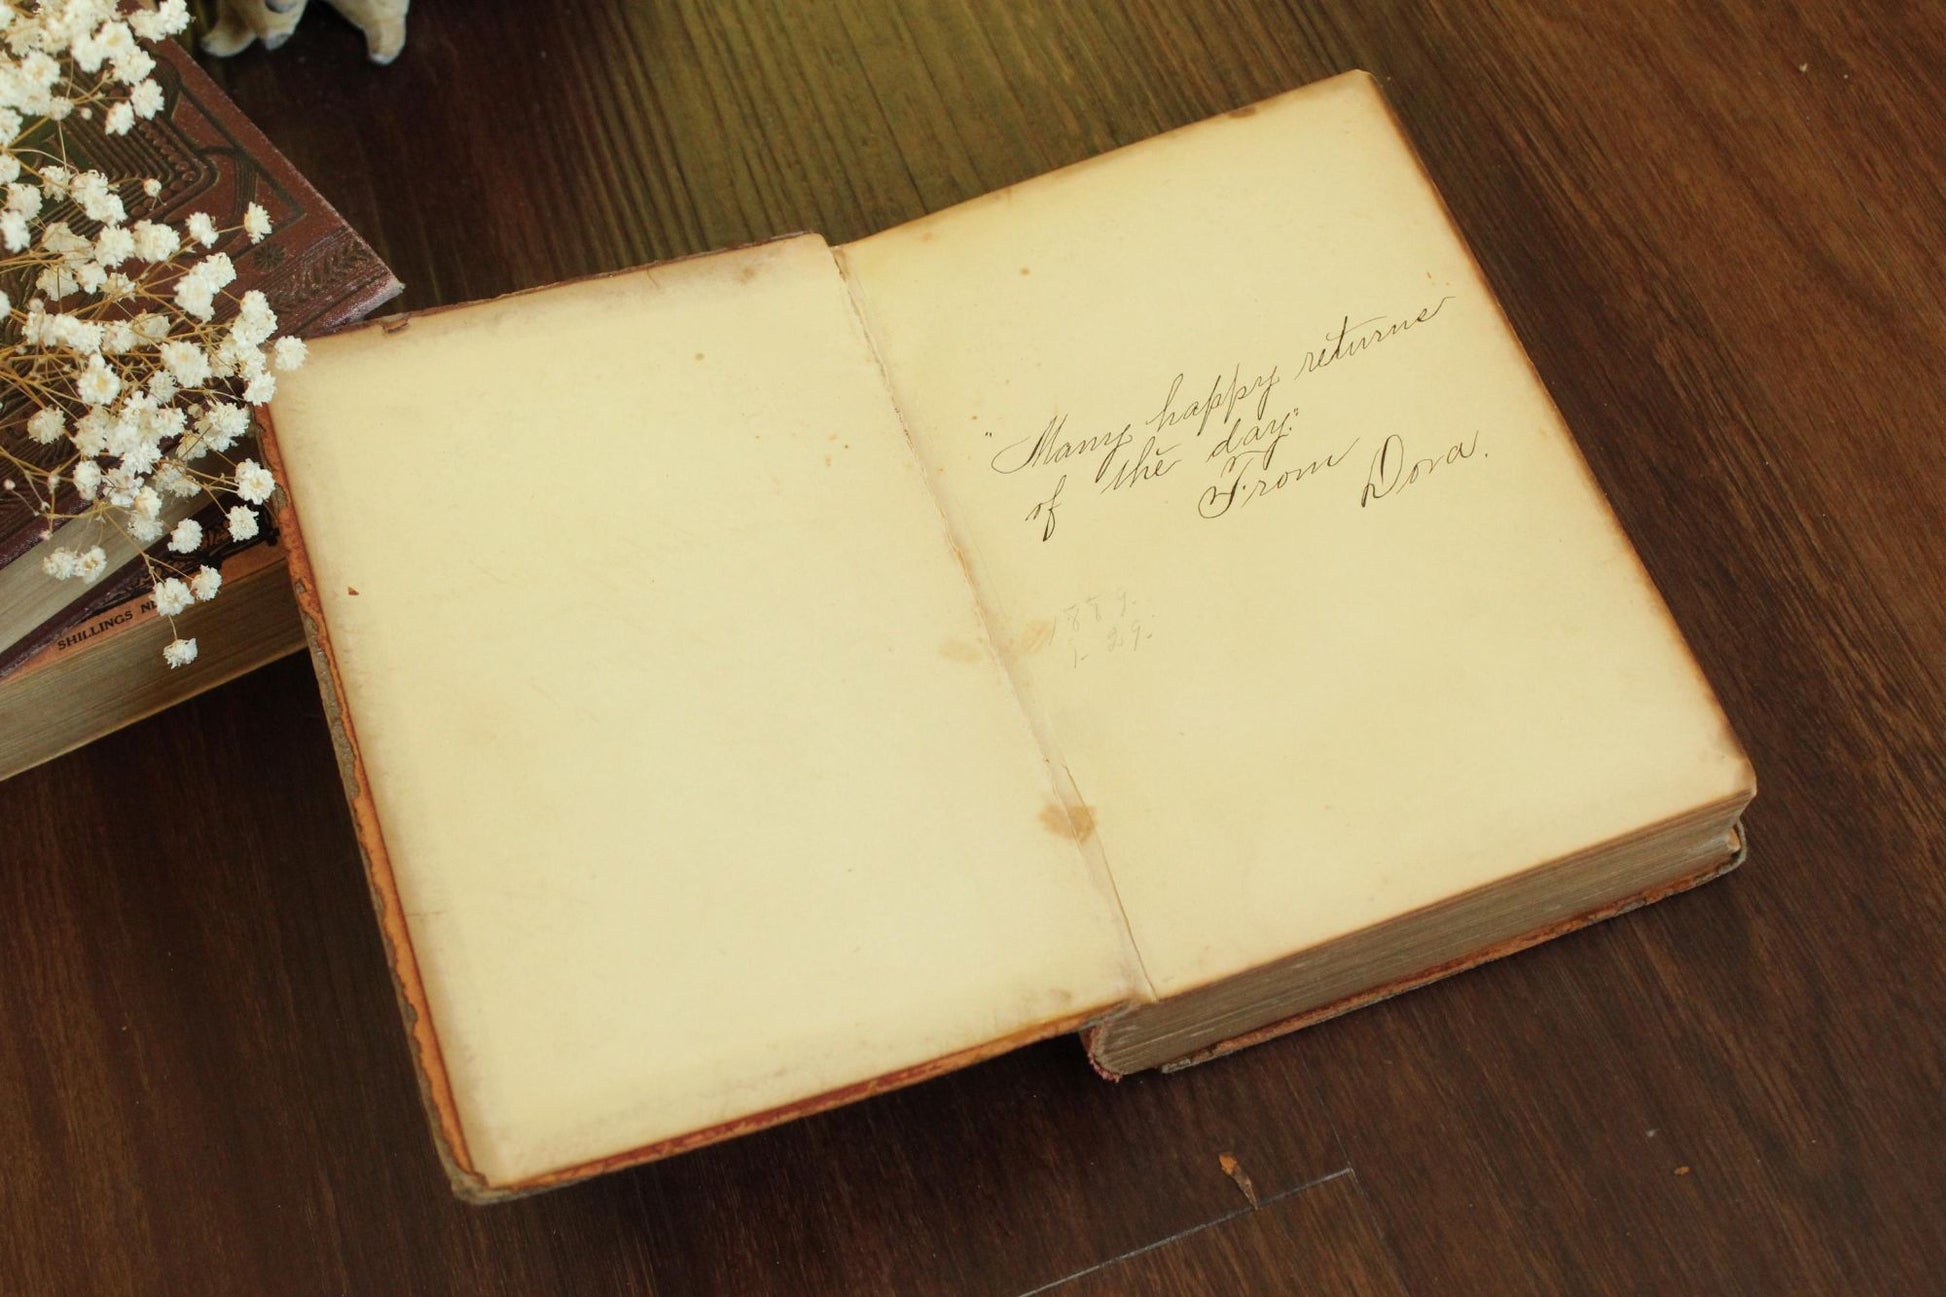 "Many happy returns
of the day."
From Dora.
1889.
1-29.
SHILLINGS